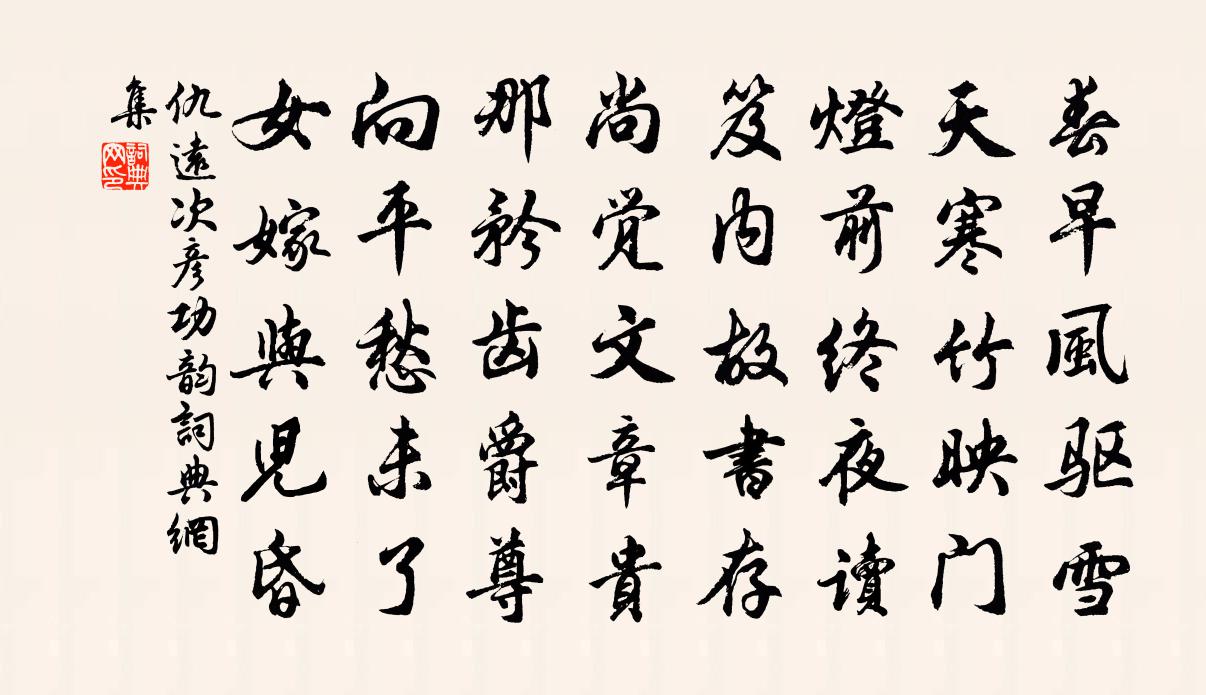 春早風驱雪
天寒竹映门
燈前终夜讀
笈内故書存
尚覚文章貴
那矜齿爵尊
向平愁未了
女嫁與児昏
仇遠次彦功韵詞典網
集
詞典
网印